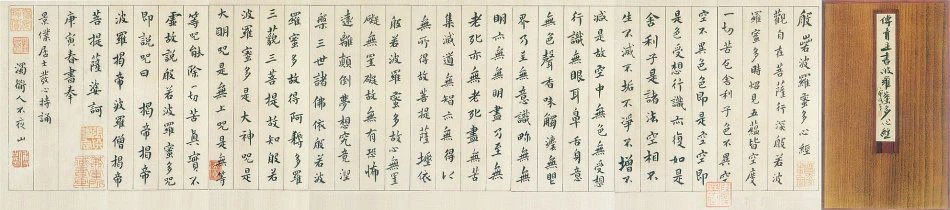 般若波羅蜜多心經
觀自在菩薩行深般若波
羅蜜多時照見五蘊皆空度
一切苦厄舍利子色不異空
空不異色色即是空空即
是色受想行識亦復如是
舍利子是諸法空相不
生不滅不垢不淨不增不
減是故空中無色無受想
行識無眼耳鼻舌身意
無色聲香味觸法無眼
界乃至無意識界無無
明亦無無明盡乃至無
老死亦無老死盡無苦
集滅道無智亦無得以
無所得故菩提薩埵依
般若波羅蜜多故心無罣
礙無罣礙故無有恐怖
遠離顛倒夢想究竟涅
槃三世諸佛依般若波
羅蜜多故得阿耨多羅
三藐三菩提故知般若
波羅蜜多是大神呪是
大明呪是無上呪是無等
等呪能除一切苦真實不
虛故說般若波羅蜜多呪
即說呪曰 揭帝揭帝
波羅揭帝波羅僧揭帝
菩提薩婆訶
庚寅春書奉
居士 持誦
人不夜山
傅青主書波羅蜜多心經